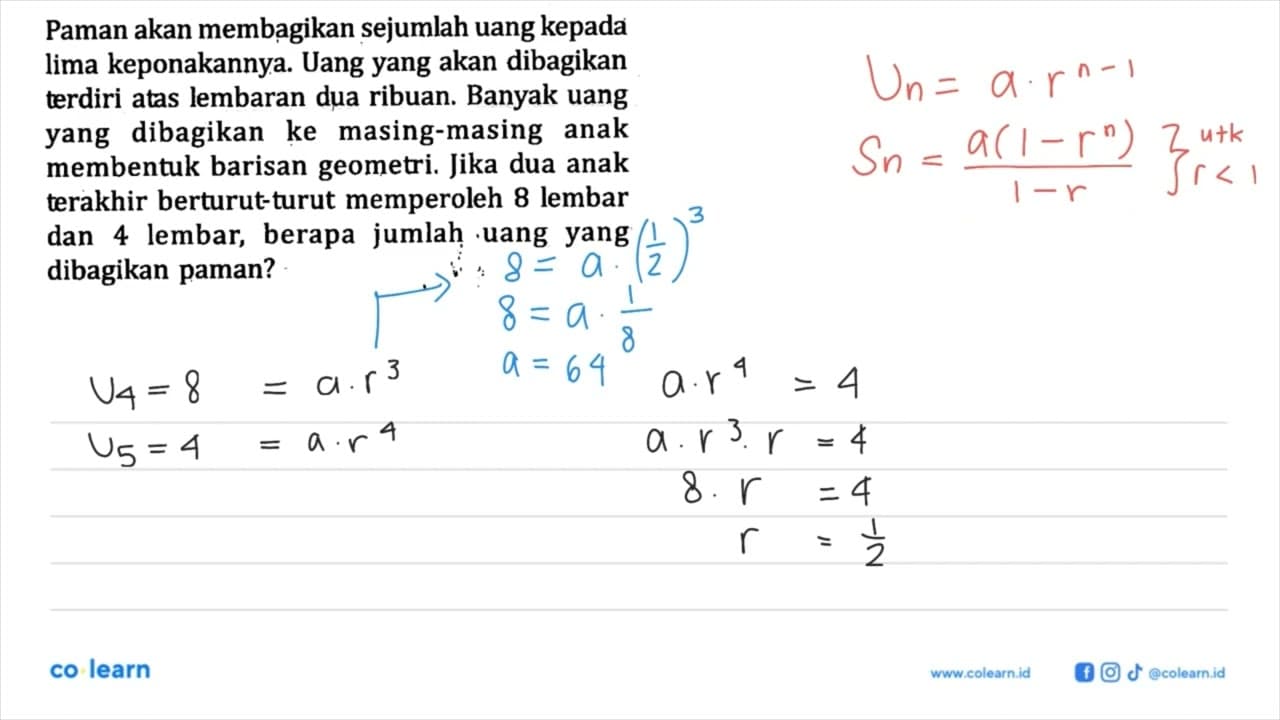 Paman akan membagikan sejumlah uang kepada
lima keponakannya. Uang yang akan dibagikan
terdiri atas lembaran dua ribuan. Banyak uang
yang dibagikan ke masing-masing anak
membentuk barisan geometri. Jika dua anak
terakhir berturut-turut memperoleh 8 lembar
dan 4 lembar, berapa jumlah uang yang
dibagikan paman?
Un = a · r^(n-1)
Sn = a(1 - r^n) / (1 - r) } utk r < 1
8 = a · (1/2)^3
8 = a · 1/8
a = 64
U4 = 8 = a · r^3
U5 = 4 = a · r^4
a · r^4 = 4
a · r^3 · r = 4
8 · r = 4
r = 1/2
co learn
www.colearn.id
@colearn.id